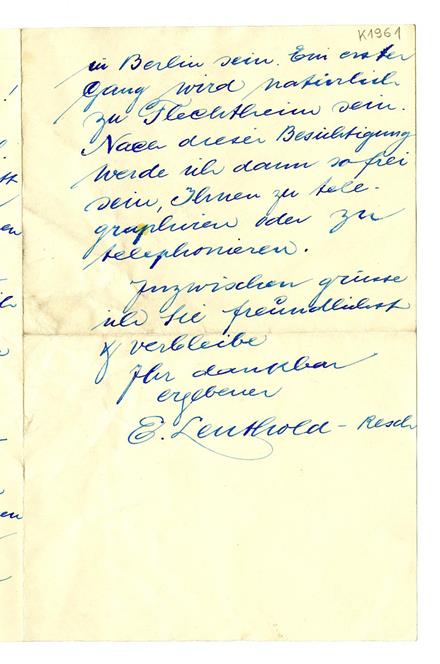 K1961
in Berlin sein. Ein erster
Gang wird natürlich
zu Flechtheim sein.
Nach dieser Besichtigung
werde ich dann so frei
sein, Ihnen zu tele-
graphieren oder zu
telephonieren.
Inzwischen grüsse
ich Sie freundlichst
& verbleibe
Ihr dankbar
ergebener
E. Leuthold - Resch